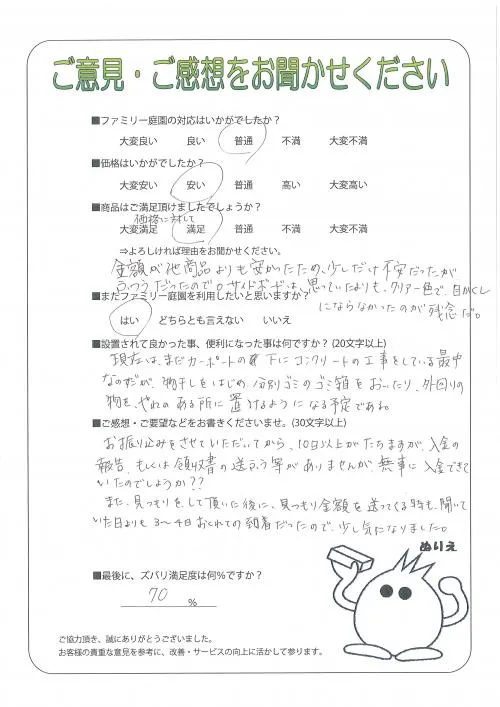 ご意見・ご感想をお聞かせください
■ファミリー庭園の対応はいかがでしたか？
大変良い 良い 普通 不満 大変不満
■価格はいかがでしたか？
大変安い 安い 普通 高い 大変高い
■商品はご満足頂けましたでしょうか？
価格に対して
大変満足 満足 普通 不満 大変不満
⇒よろしければ理由をお聞かせください。
金額が他商品よりも安かったため、少しだけ不安だったが
ふつうだったので。サイドボードは、思っていたよりも、クリアー色で、目かくし
にならなかったのが残念だ。
■またファミリー庭園を利用したいと思いますか？
はい どちらとも言えない いいえ
■設置されて良かった事、便利になった事は何ですか？(20文字以上)
現在は、まだカーポートの下にコンクリートの工事をしている最中
なのだが、物干しをはじめ、分別ゴミのゴミ箱をおいたり、外回りの
物を、やねのある所に置けるようになる予定である。
■ご感想・ご要望などをお書きくださいませ。(30文字以上)
お振り込みをさせていただいてから、10日以上がたちますが、入金の
報告、もしくは領収書の送ふう等がありませんが、無事に入金できて
いたのでしょうか??
また、見つもりをして頂いた後に、見つもり金額を送ってくる時も、聞いて
いた日よりも3〜4日おくれての到着だったので、少し気になりました。
ぬりえ
■最後に、ズバリ満足度は何％ですか？
70 %
ご協力頂き、誠にありがとうございました。
お客様の貴重な意見を参考に、改善・サービスの向上に活かして参ります。